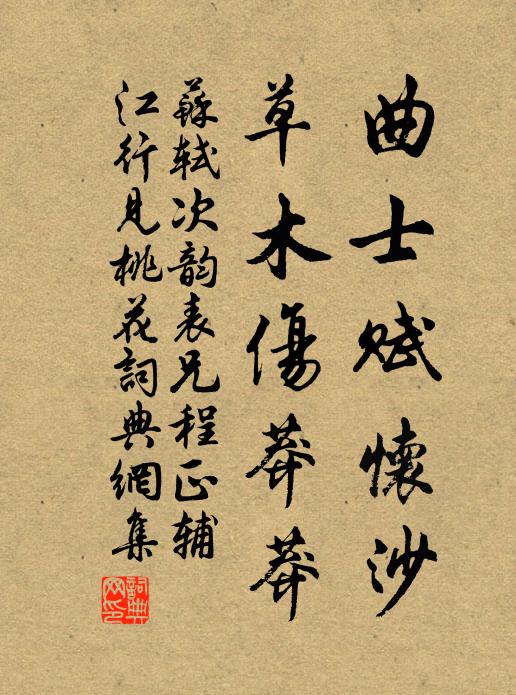 曲士賦懷沙
草木傷莽莽
蘇軾次韵表兄程正輔
江行見桃花詞典網集
詞典网印